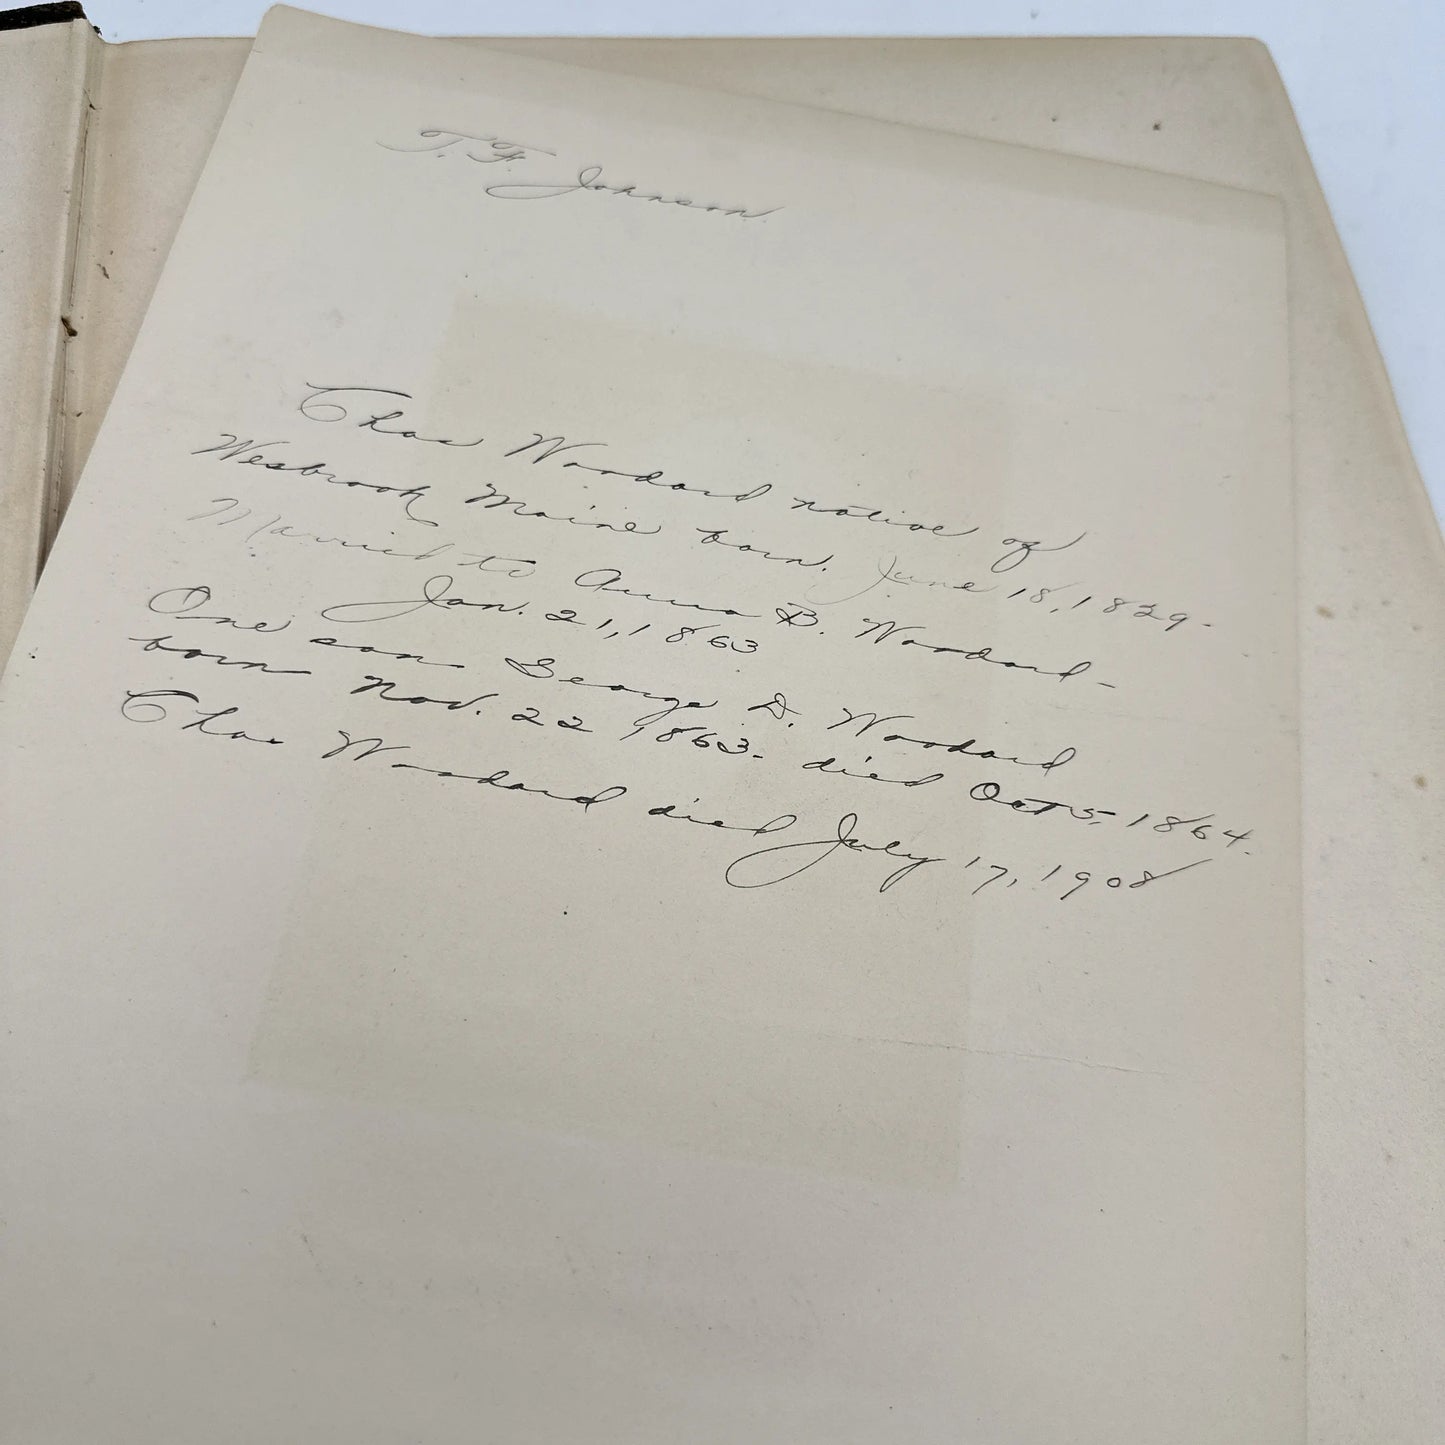 T. F. Johnson
Chas Woodard native of
Wesbrook Maine born. June 18, 1829.
Married to Anna B. Woodard-
Jan. 21, 1863
One son George D. Woodard
born Nov. 22 1863. died Oct 5, 1864.
Chas Woodard died July 17, 1908